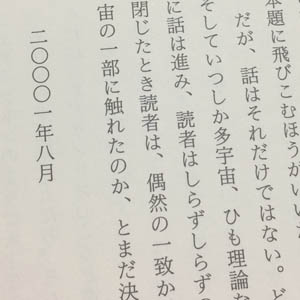 本題に飛びこむほうがいい。ど
だが、話はそれだけではない。
そしていつしか多宇宙、ひも理論な
に話は進み、読者はしらずしらず
閉じたとき読者は、偶然の一致か
宙の一部に触れたのか、とまだ決
二〇〇〇一年八月